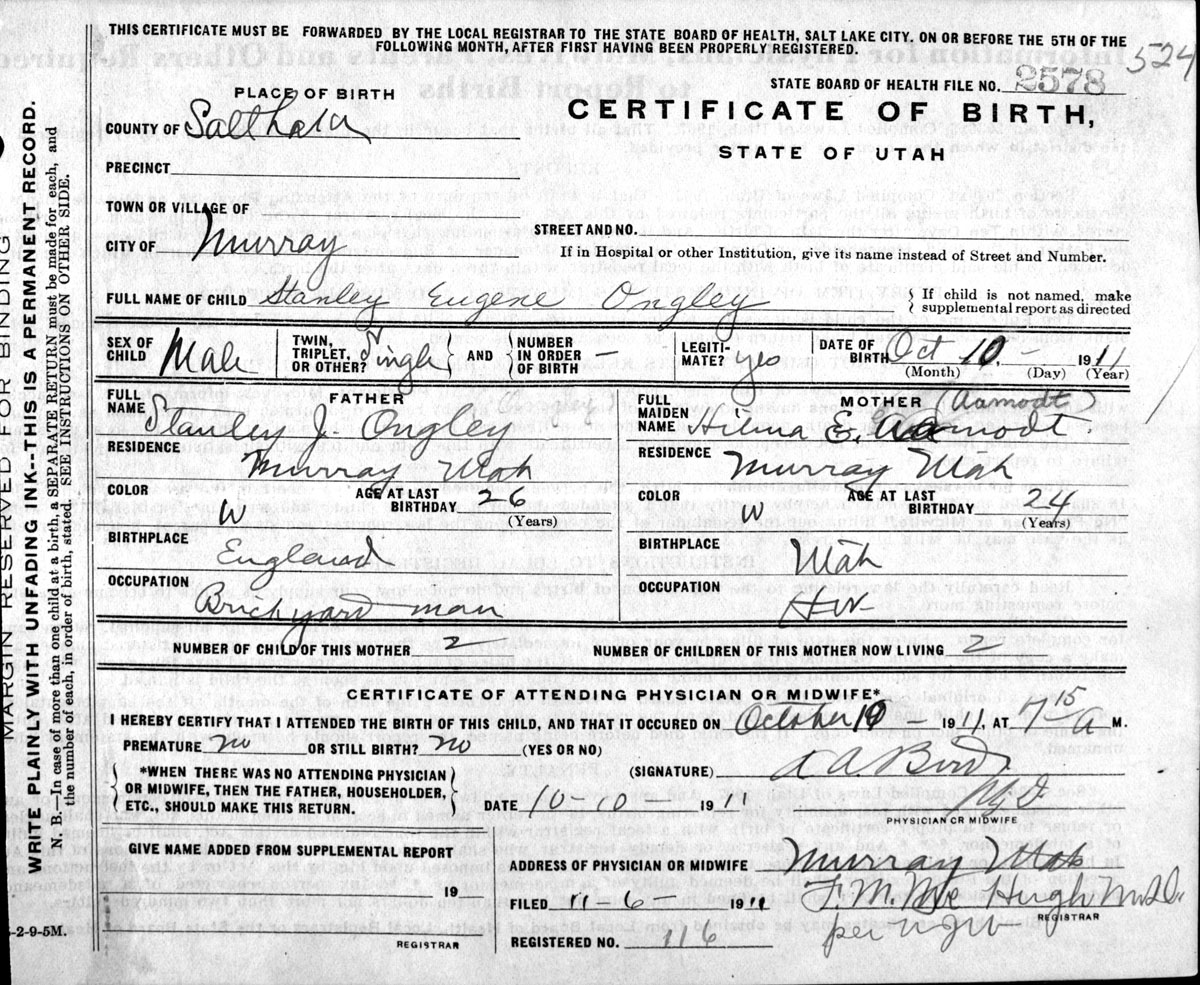 THIS CERTIFICATE MUST BE FORWARDED BY THE LOCAL REGISTRAR TO THE STATE BOARD OF HEALTH, SALT LAKE CITY, ON OR BEFORE THE 5TH OF THE
FOLLOWING MONTH, AFTER FIRST HAVING BEEN PROPERLY REGISTERED.
524
STATE BOARD OF HEALTH FILE NO. 2578
PLACE OF BIRTH
CERTIFICATE OF BIRTH,
STATE OF UTAH
COUNTY OF Salt Lake
PRECINCT
TOWN OR VILLAGE OF
CITY OF Murray
STREET AND NO.
If in Hospital or other Institution, give its name instead of Street and Number.
FULL NAME OF CHILD Stanley Eugene Ongley
If child is not named, make
supplemental report as directed
SEX OF CHILD Male
TWIN, TRIPLET, OR OTHER? Single AND NUMBER IN ORDER OF BIRTH –
LEGITIMATE? yes
DATE OF BIRTH Oct 10, – 1911
(Month) (Day) (Year)
FATHER
FULL NAME Stanley J. Ongley
RESIDENCE
Murray Utah
COLOR W
AGE AT LAST BIRTHDAY 26
(Years)
BIRTHPLACE
England
OCCUPATION
Brickyard man
MOTHER (Aamodt)
FULL MAIDEN NAME Hilma E. Aamodt
RESIDENCE
Murray Utah
COLOR W
AGE AT LAST BIRTHDAY 24
(Years)
BIRTHPLACE
Utah
OCCUPATION
HW
NUMBER OF CHILD OF THIS MOTHER 2 –
NUMBER OF CHILDREN OF THIS MOTHER NOW LIVING 2
CERTIFICATE OF ATTENDING PHYSICIAN OR MIDWIFE*
I HEREBY CERTIFY THAT I ATTENDED THE BIRTH OF THIS CHILD, AND THAT IT OCCURED ON October 10 – 1911, AT 7 15 A M.
PREMATURE no OR STILL BIRTH? no (YES OR NO)
*WHEN THERE WAS NO ATTENDING PHYSICIAN
OR MIDWIFE, THEN THE FATHER, HOUSEHOLDER,
ETC., SHOULD MAKE THIS RETURN.
(SIGNATURE) A A. Bird
M.D.
PHYSICIAN OR MIDWIFE
DATE 10-10 – 1911
GIVE NAME ADDED FROM SUPPLEMENTAL REPORT
19
REGISTRAR
ADDRESS OF PHYSICIAN OR MIDWIFE Murray Utah
FILED 11-6 1911
F. M. Mc Hugh
REGISTRAR
REGISTERED NO. 116
per
-2-9-5M.
MARGIN RESERVED FOR BINDING
WRITE PLAINLY WITH UNFADING INK--THIS IS A PERMANENT RECORD.
N. B.—In case of more than one child at a birth, a SEPARATE RETURN must be made for each, and
the number of each, in order of birth, stated. SEE INSTRUCTIONS ON OTHER SIDE.